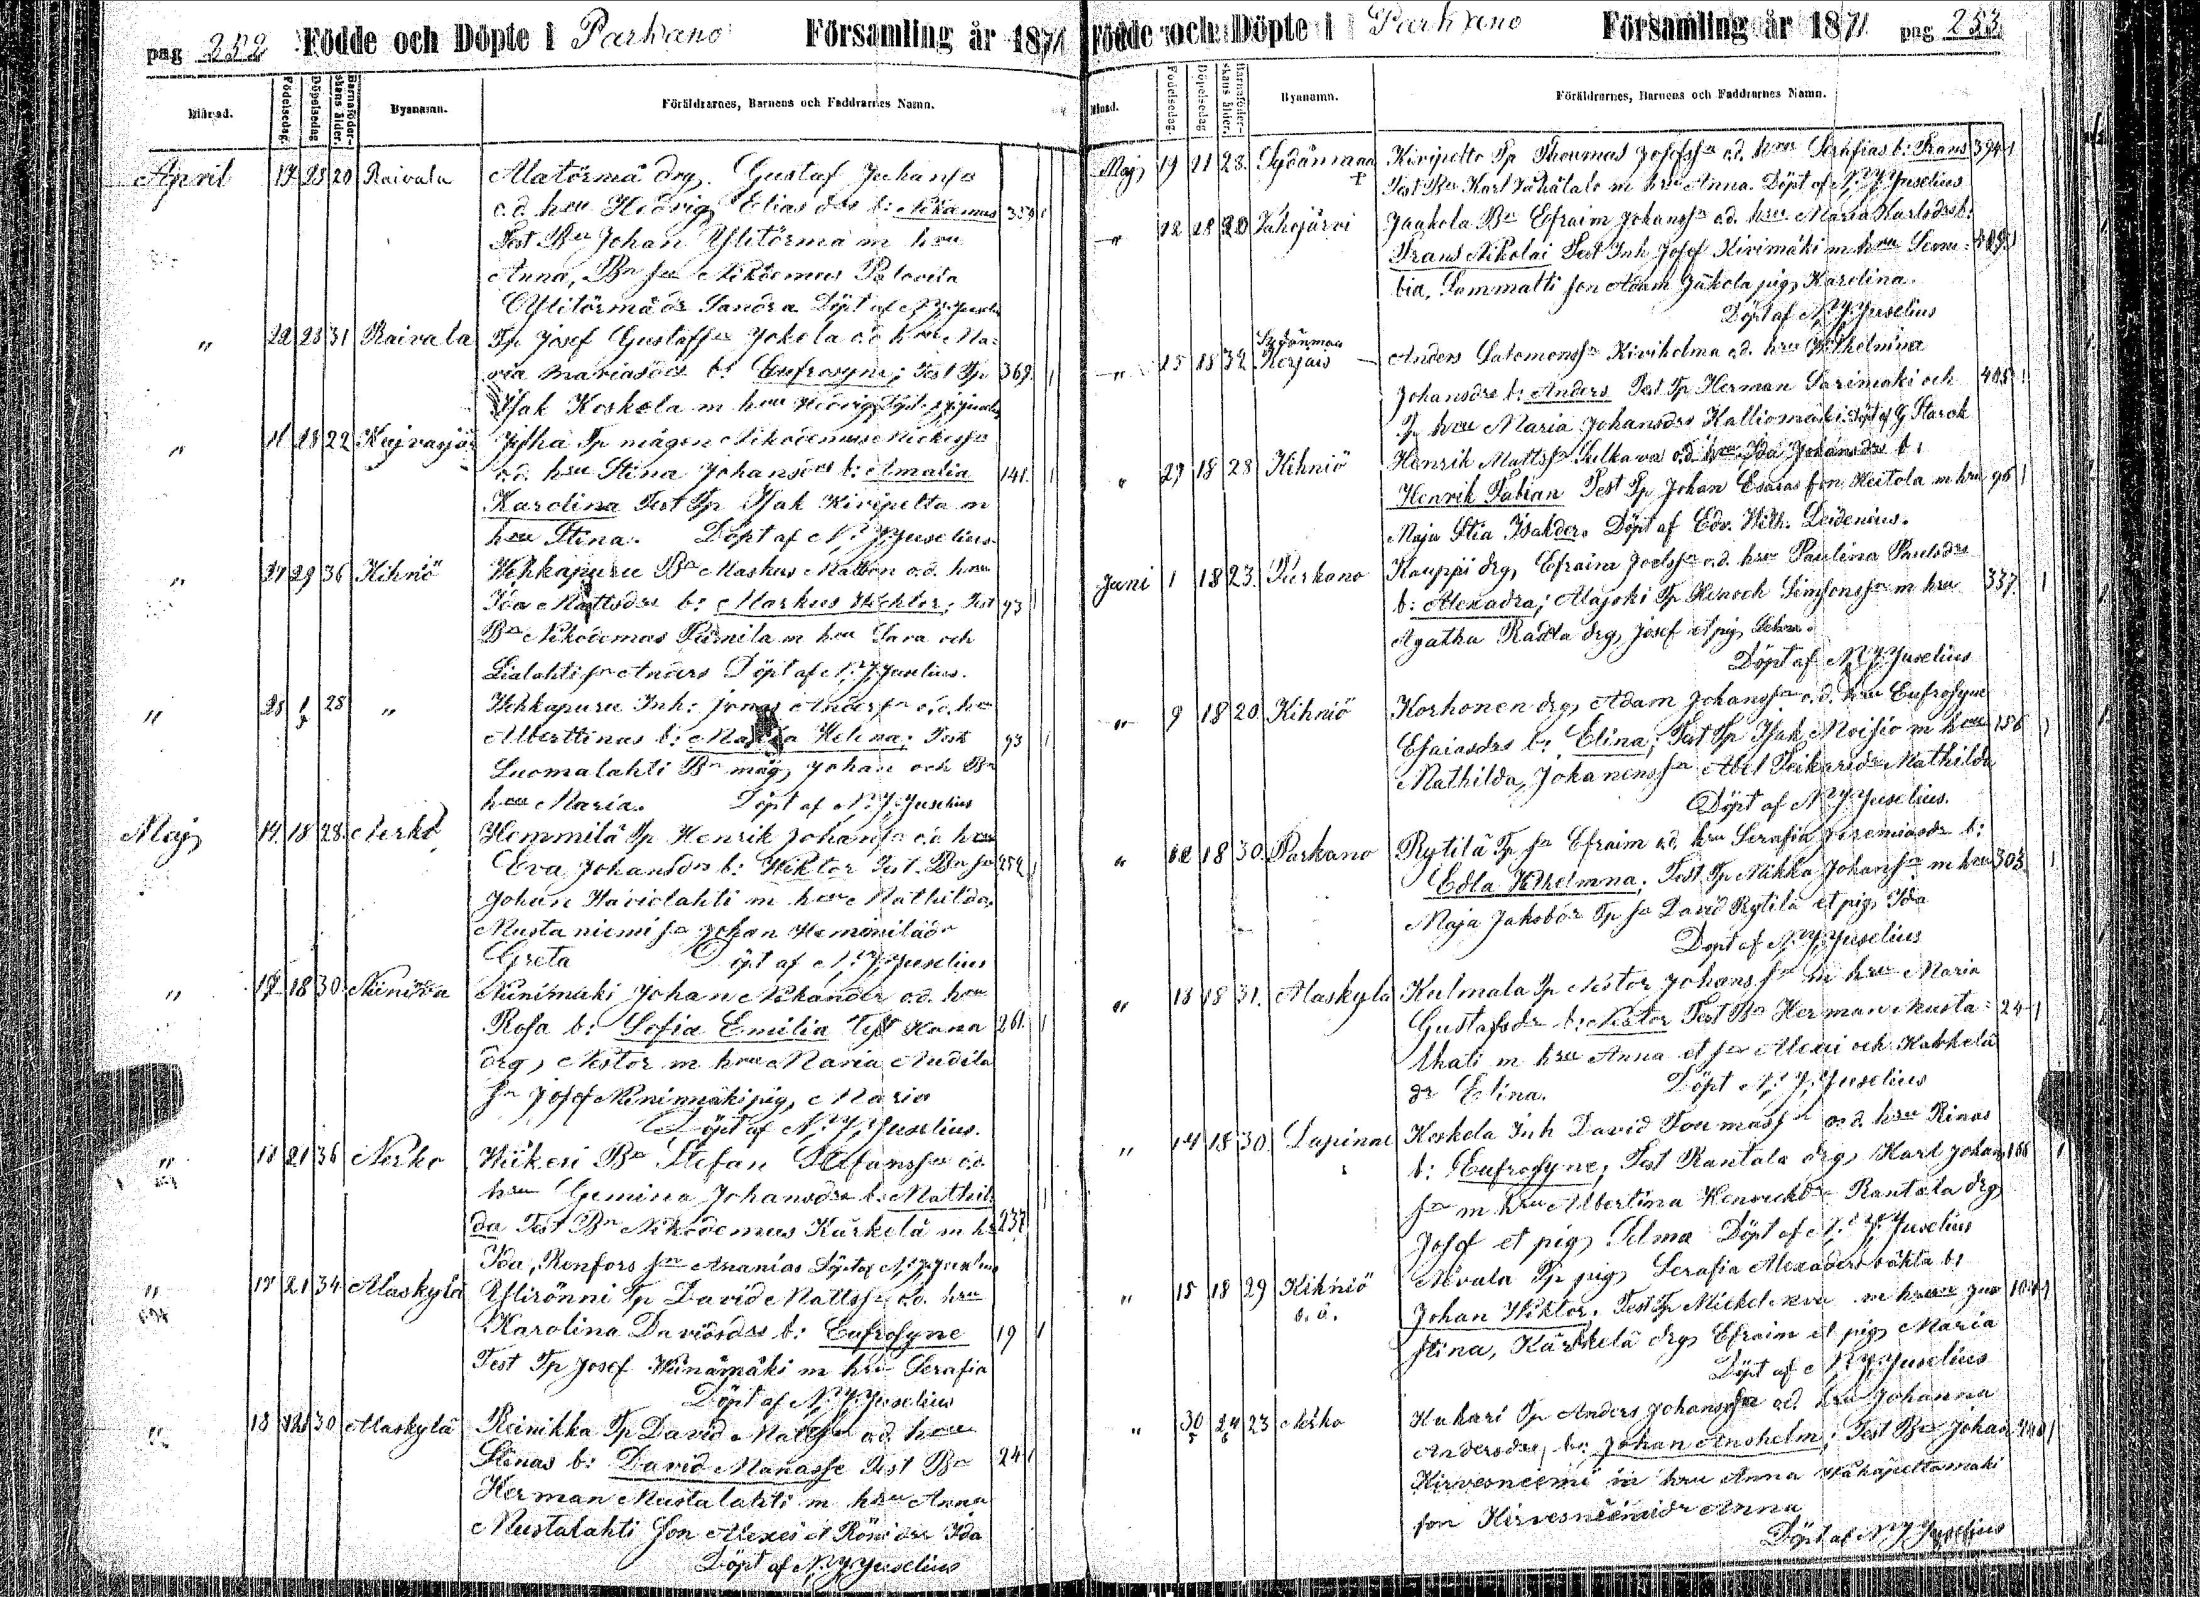 pag 252 Födde och Döpte i Parkano Församling år 1871
Månad. Födelsedag. Döpelsedag Barnaföderskans ålder. Bynamn. Föräldrarnes, Barnens och Faddrarnes Namn.
April 17 23 20 Raivala Alatörmä drg. Gustaf Juhanss
o.d. hru Hedvig Elias drs b:
Test Bn Johan Ylitörmä m hru
Anna, Bn son Nikodemus Palovita
Ylitörmä dr Sandra Döpt af N. J. Juselius
" 22 23 31 Raivala Tp Josef Gustafsson Jokela o.d hru Ma-
ria Mariasdrs b: Eufrosyne; Test Tp 369.
Isak Koskela m hru Hedvig Döpt. J. Juselius
" 11 18 22 Tp mågen Nikodemus
o.d. hru Stina Johansdrs b: Amalia 141.
Karolina Test Tp Isak Kiripelta m
hru Stina. Döpt af N. J. Juselius
" 27 29 36 Kihniö Wehkapuru Bn Maskus Mattson o.d. hru
Ida Mattsdrs b: Markus Wichtor; Test 93
Bn Nikodemus m hru Sara och
Lialahti son Anders Döpt af N. J. Juselius.
" 28 28 " Wehkapuru Inh: Jonas Anders o.d. hru
Alberttinas b: Helena; Test 93
Luomalahti Bn måg Johan och Bn
hru Maria. Döpt af N. J. Juselius
Maj 14. 18 28. Nerko Hemmilä Tp Henrik Johanss o.d hru
Eva Johansdrs b: Wiktor Test. Bn son 252
Johan Haviolahti m hru Mathilda,
Mustaniemi son Johan Hemmilä dr
Greta Döpt af N. J. Juselius
" 17 18 30. Niinimäki Johan Nikander o.d. hru
Rosa b: Sofia Emilia Test Kana 261.
drg, Nestor m hru Maria
son Josef Niinimäki pig, Maria
Döpt af N. J. Juselius.
" 18 21 36 Nerko Wiikeri Bn Stefan Stefansson o.d
hru Gemina Johansdrs b: Mathil-
da Test Bn Nikodemus Kärkelä m hr 237
Ida, Renfors son Ananias Döpt af N. J. Juselius
" 17 21 34 Alaskylä Ylirönni Tp David Mattss o.d. hru
Karolina Davidsdrs b: Eufrosyne 19
Test Tp Josef m hru Serafia
Döpt af N. J. Juselius
" 18 30 Alaskylä Reinikka Tp David Matts o.d. hru
Stinas b: David Manasse Test Bn 24
Herman Mustalahti m hru Anna
Mustalahti son Alexei et Röni dr Ida
Döpt af N. J. Juselius
Födde och Döpte i Parkano Församling år 1871 pag 253
Månad. Födelsedag. Döpelsedag Barnaföderskans ålder. Bynamn. Föräldrarnes, Barnens och Faddrarnes Namn.
Maj 19 21 23. Sydänmaa Kiripelto Tp Thoumas Josefsson o.d. hru Serafias b: Frans 394
Test Bn Karl m hru Anna. Döpt af N. J. Juselius
" 12 18 20 Vahojärvi Jaakola Bn Efraim Johansson o.d. hru Maria Karlsdrs b:
Frans Nikolai Test Inh Josef Kivimäki m hru
bia, Lammatti son Adam Jäkola pig Karolina.
Döpt af N. J. Juselius
Sydänmaa
" 15 18 32 Anders Salomonsson Kiviholma o.d. hru Wilhelmina
Johansdrs b: Anders Test Tp Herman Sarimäki och 405
Tp hru Maria Johansdrs Kalliomäki. Döpt af G Starck
" 29 18 28 Kihniö Henrik Mattsson Sulkava o.d. hru Ida Johansdrs b:
Henrik Fabian Test Tp Johan Esaias son Heitola m hru 96
Maja Stia Isakdrs. Döpt af Edv. Wilh. Leidenius.
Juni 1 18 23. Parkano Kauppi drg, Efraim Joelsson o.d. hru Paulina Paulsdrs
b: Alexadra; Alajoki Tp Henoch Simsonsson m hru 337.
Agatha Raddla drg, Josef et pig
Döpt af N. J. Juselius
" 9 18 20. Kihniö Korhonen drg, Adam Johansson o.d. hru Eufrosyne
Esaiasdrs b: Elina; Test Tp Isak Moisio m hru 156
Mathilda, Johanensson Abel Mathilda
Döpt af N. J. Juselius.
" 18 30. Parkano Rytilä Tp son Efraim o.d. hru Serafia Jeremiasdr b:
Edla Wilhelmina; Test Tp Mikka Johansson m hru 303.
Maja Jakobdr Tp son David Rytilä et pig, Ida
Döpt af N. J. Juselius
" 13 18 31. Alaskylä Kulmala Tp Nestor Johansson m hru Maria
Gustafsdr b: Nestor Test Bn Herman Musta- 24
lhati m hru Anna et son Alexei och Kärkelä
dr Elina. Döpt N. J. Juselius
" 14 18 30. Lapinne Koskela Inh David Toumasson o.d. hru Rinas
b: Eufrosyne; Test Rantala drg, Karl Johan 166
son m hru Albertina Henrickdr Rantala drg,
Josef et pig, Selma Döpt af N. J. Juselius
" 15 18 29 Kihniö Nevala Tp pig, Serafia Alexadersd oäkta b:
o.ä. Johan Wiktor, Test Tp Mickel m hru
stina, Kärkelä drg, Efraim et pig, Maria
Döpt af N. J. Juselius
" 30/5 24/6 23 Nerko Kakari Tp Anders Johansson o.d. hru Johanna
Andersdrs, b: Johan Anshelm; Test Bn Johan 240
Kirvesniemi m hru Anna
son Kirvesniemi dr Anna
Döpt af N. J. Juselius